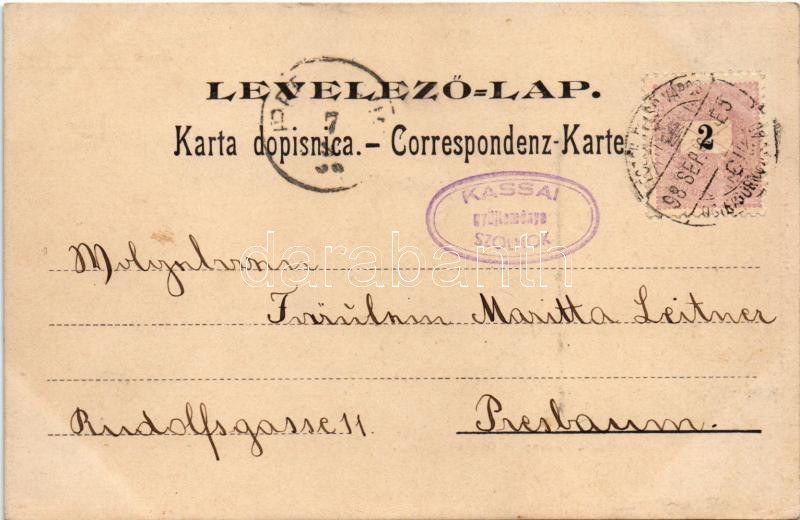 LEVELEZŐ=LAP.
Karta dopisnica. – Correspondenz-Karte.
2
98 SEP
7
KASSAI
gyűjteménye
SZOLNOK
darabanth
Fräulein Maritta Leitner
Rudolfsgasse 11. Presbaum.